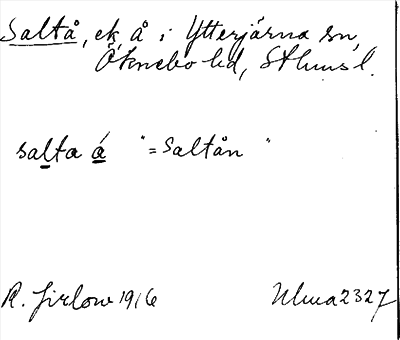 Saltå, ek å i Ytterjärna sn,
Öknebo hd, Sthms l.
salta á " = Saltån "
R. Jirlow 1916 Ulma 2327